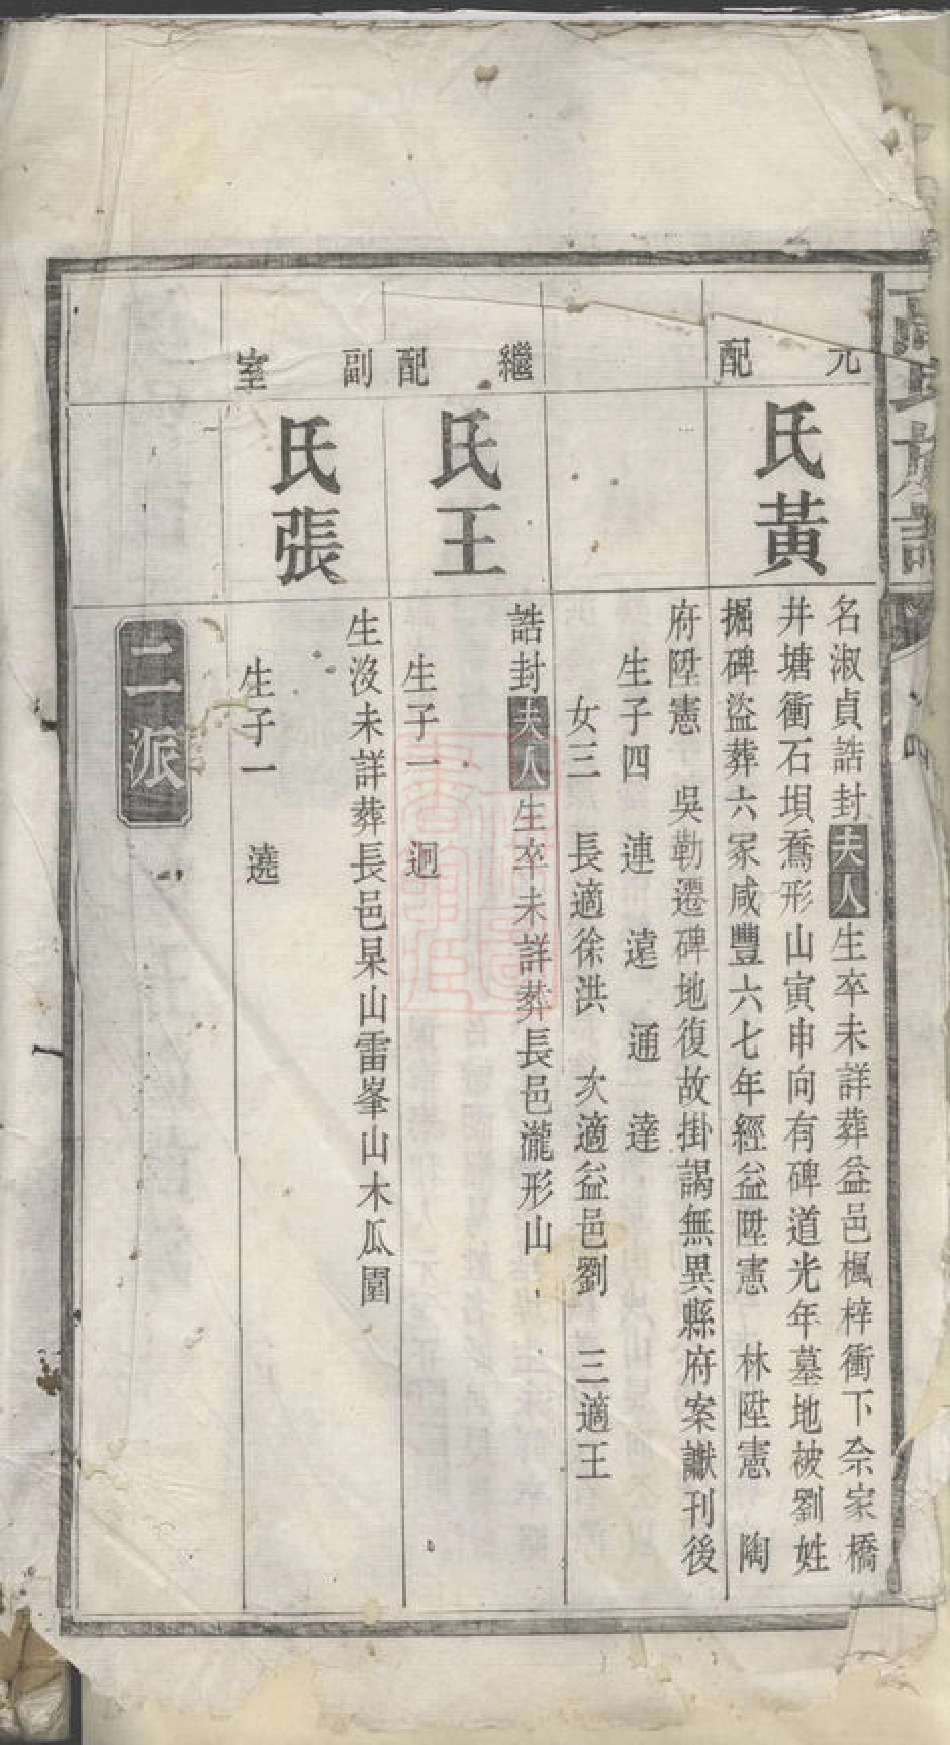 族譜
元配
氏黃
名淑貞誥封夫人生卒未詳葬益邑楓梓衝下佘家橋
井塘衝石垻喬形山寅申向有碑道光年墓地被劉姓
掘碑盜葬六冢咸豐六七年經益陞憲 林陞憲 陶
府陞憲 吳勒遷碑地復故掛謁無異縣府案讞刊後
生子四 連 遠 通 達
女三 長適徐洪 次適益邑劉 三適王
繼配
氏王
誥封夫人生卒未詳葬長邑瀧形山
生子一 迥
副室
氏張
生沒未詳葬長邑杲山雷峯山木瓜園
生子一 遶
二派